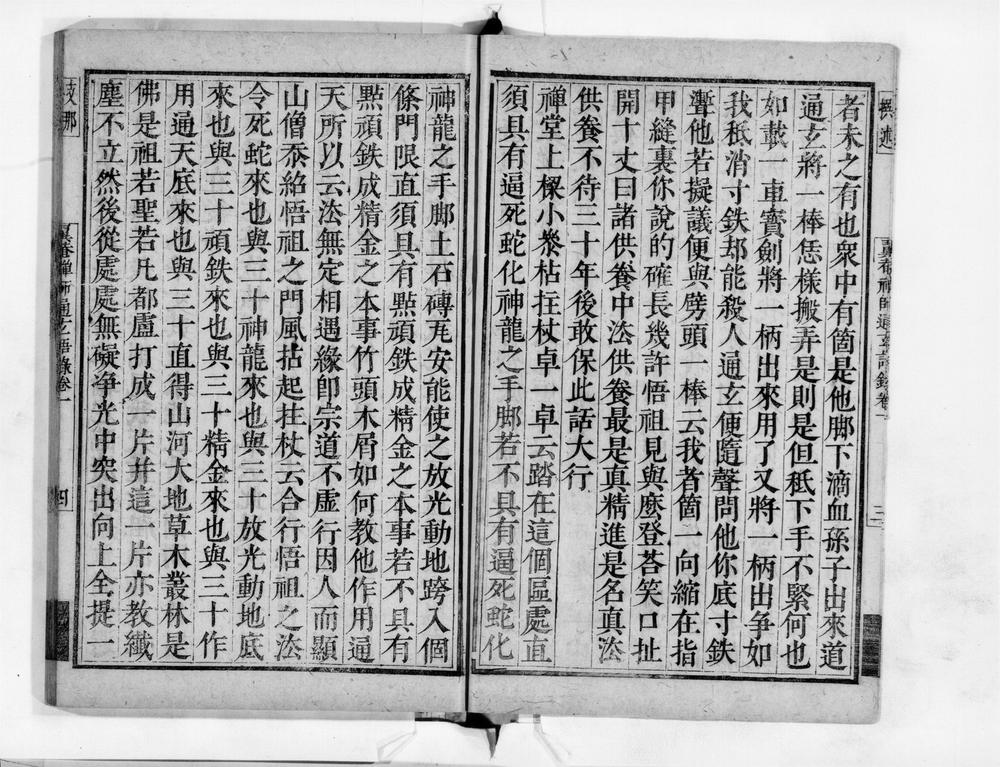 者未之有也衆中有箇是他脚下滴血孫子出來道
通玄將一棒恁樣搬弄是則是但秪下手不緊何也
如載一車寶劍將一柄出來用了又將一柄出争如
我秪消寸鉄却能殺人通玄便隨聲問他你底寸鉄
聻他若擬議便與劈頭一棒云我者箇一向縮在指
甲縫裏你說的確長幾許悟祖見與麼登荅笑口扯
開十丈曰諸供養中法供養最是真精進是名真法
供養不待三十年後敢保此話大行
禪堂上樑小叅拈拄杖卓一卓云踏在這個區處直
須具有逼死蛇化神龍之手脚若不具有逼死蛇化
神龍之手脚土石磚瓦安能使之放光動地跨入個
條門限直須具有㸃頑鉄成精金之本事若不具有
㸃頑鉄成精金之本事竹頭木屑如何教他作用逼
天所以云法無定相遇緣卽宗道不虛行因人而顯
山僧忝紹悟祖之門風拈起拄杖云合行悟祖之法
令死蛇來也與三十神龍來也與三十放光動地底
來也與三十頑鉄來也與三十精金來也與三十作
用逼天底來也與三十直得山河大地草木叢林是
佛是祖若聖若凡都盧打成一片并這一片亦教纖
塵不立然後從處處無礙争光中突出向上全提一
菴禪師通玄語錄卷一
四